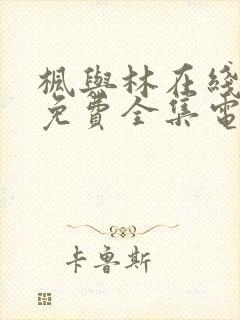 楓與林在綫
免費全集電
卡魯斯